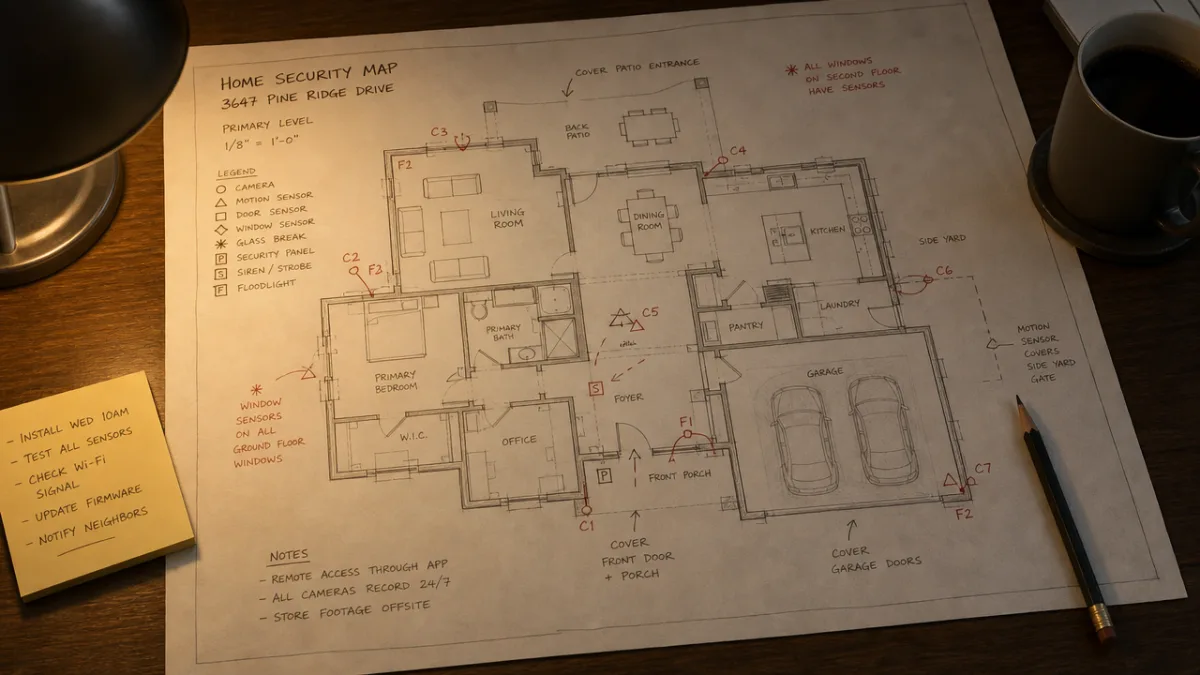 HOME SECURITY MAP
3647 PINE RIDGE DRIVE
PRIMARY LEVEL
1/8" = 1'-0"
LEGEND
CAMERA
MOTION SENSOR
DOOR SENSOR
WINDOW SENSOR
GLASS BREAK
P SECURITY PANEL
S SIREN / STROBE
F FLOODLIGHT
COVER PATIO ENTRANCE
ALL WINDOWS
ON SECOND FLOOR
HAVE SENSORS
C3
F2
BACK
PATIO
C4
LIVING
ROOM
DINING
ROOM
KITCHEN
SIDE YARD
C2
F2
C6
C5
PRIMARY
BATH
PANTRY
LAUNDRY
MOTION
SENSOR
COVERS
SIDE YARD
GATE
PRIMARY
BEDROOM
S
FOYER
GARAGE
WINDOW
SENSORS
ON ALL
GROUND FLOOR
WINDOWS
W.I.C.
OFFICE
F1
P
FRONT PORCH
C7
F2
C1
COVER
FRONT DOOR
+ PORCH
COVER
GARAGE DOORS
NOTES
- REMOTE ACCESS THROUGH APP
- ALL CAMERAS RECORD 24/7
- STORE FOOTAGE OFFSITE
- INSTALL WED 10AM
- TEST ALL SENSORS
- CHECK Wi-Fi
SIGNAL
- UPDATE FIRMWARE
- NOTIFY NEIGHBORS